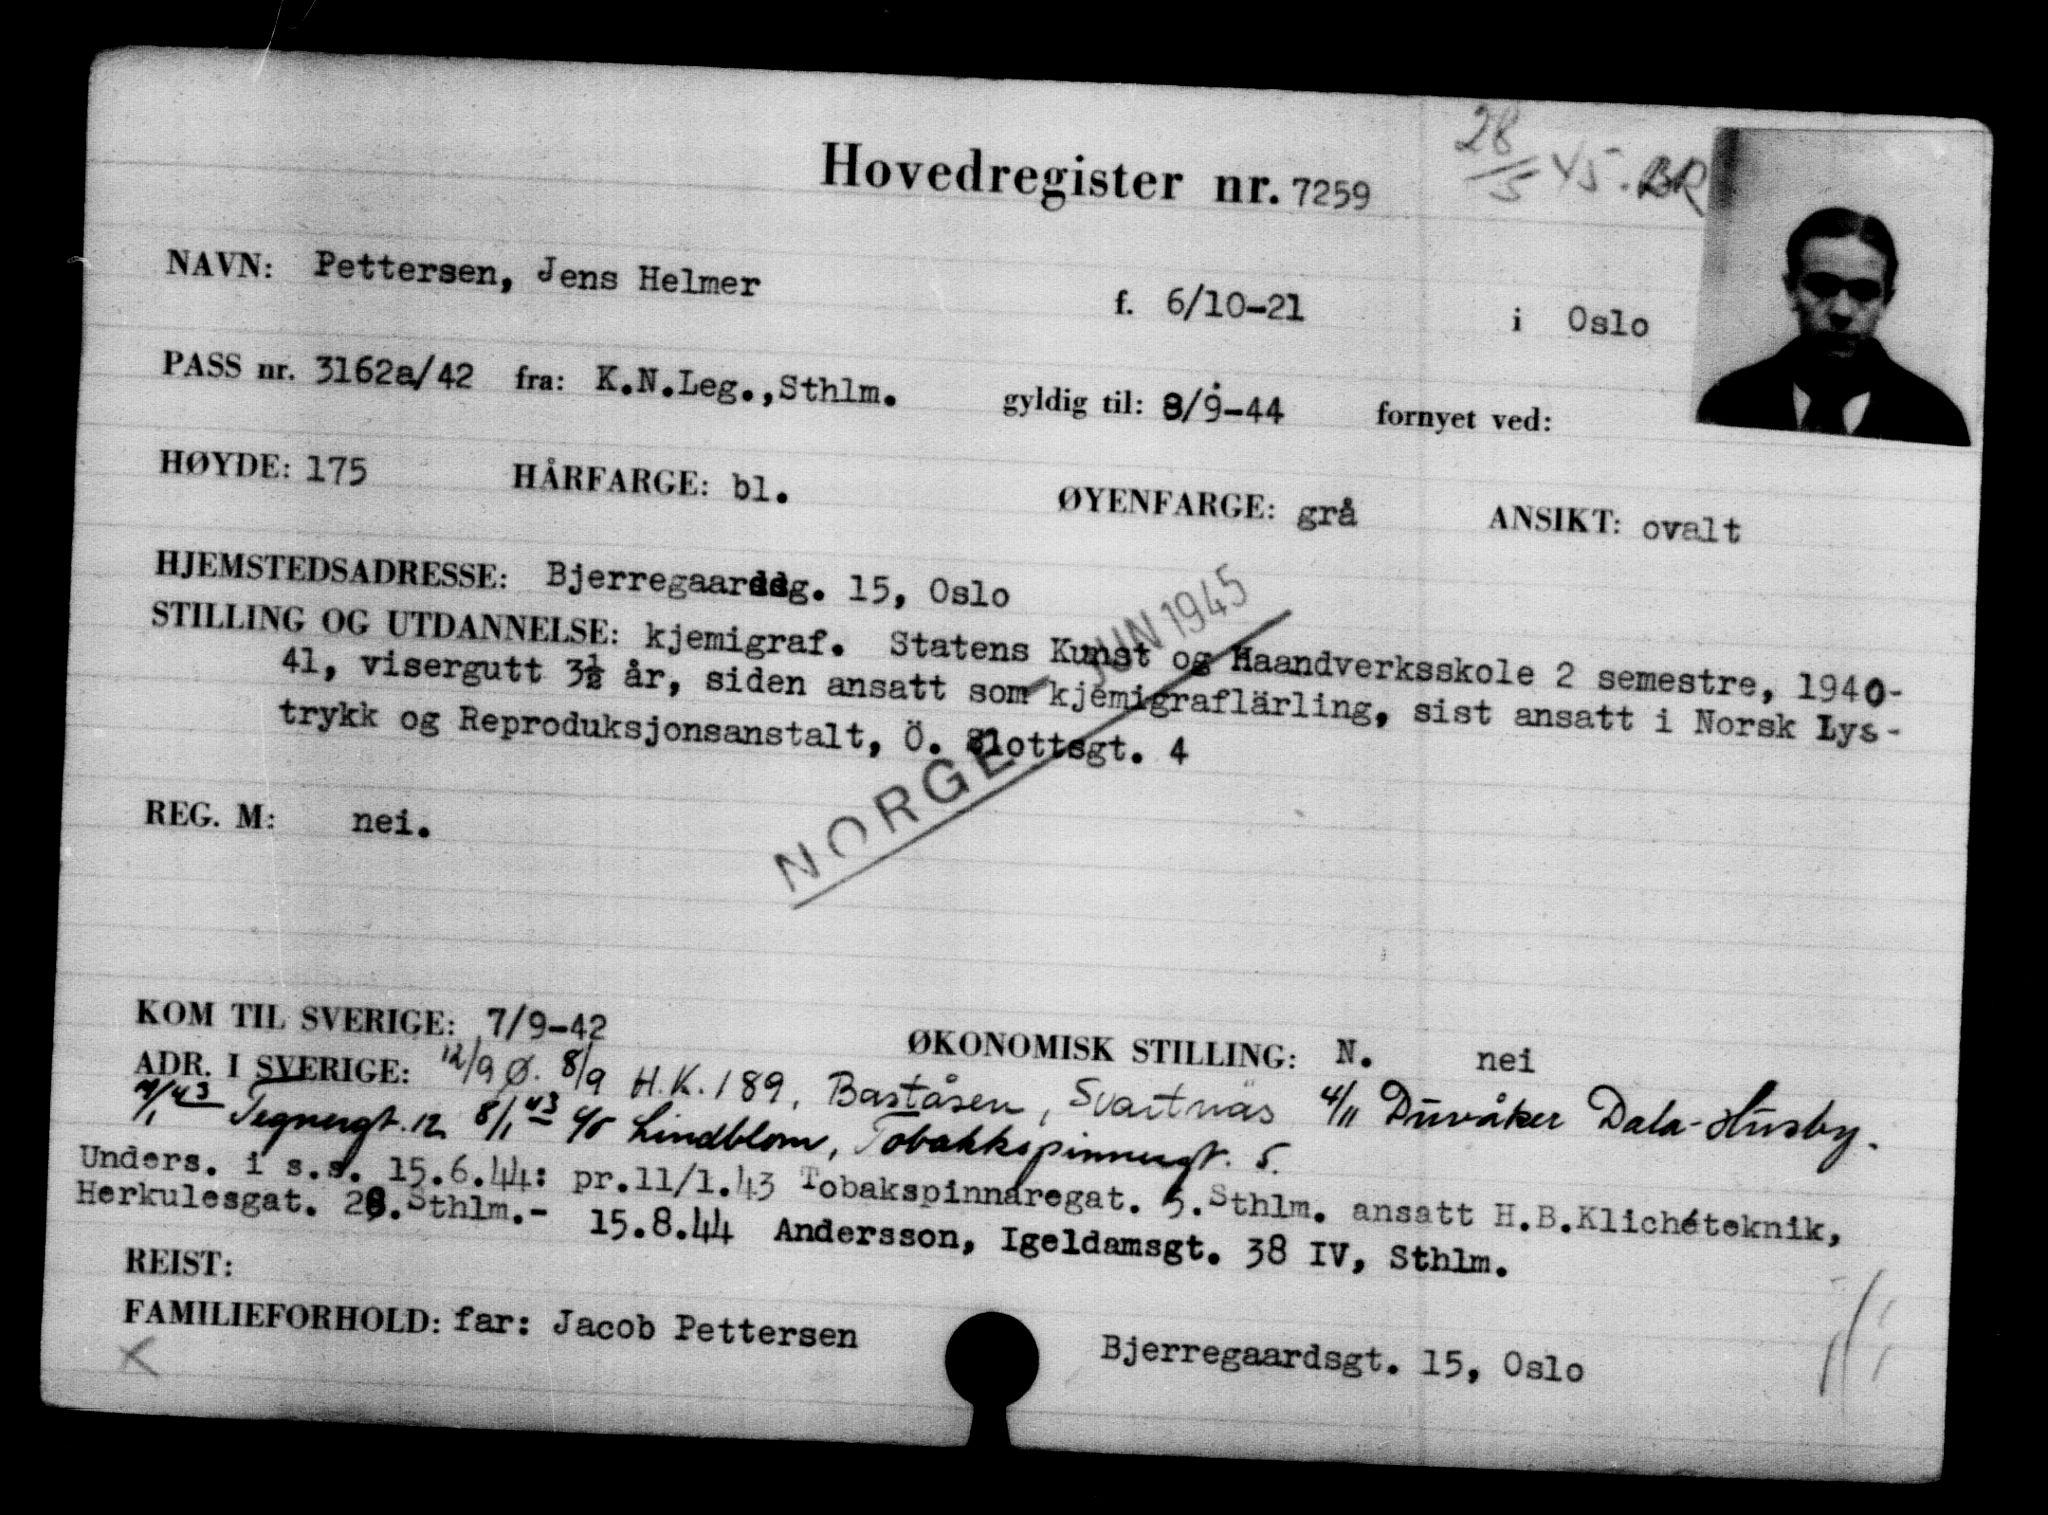 28/5 45. BR
Hovedregister nr. 7259
NAVN: Pettersen, Jens Helmer f. 6/10-21 i Oslo
PASS nr. 3162a/42 fra: K.N.Leg.,Sthlm. gyldig til: 8/9-44 fornyet ved:
HØYDE: 175 HÅRFARGE: bl. ØYENFARGE: grå ANSIKT: ovalt
HJEMSTEDSADRESSE: Bjerregaardsg. 15, Oslo
STILLING OG UTDANNELSE: kjemigraf. Statens Kunst og Haandverksskole 2 semestre, 1940-
41, visergutt 3½ år, siden ansatt som kjemigraflärling, sist ansatt i Norsk Lys-
trykk og Reproduksjonsanstalt, Ö. Slottsgt. 4
NORGE - JUN 1945
REG. M: nei.
KOM TIL SVERIGE: 7/9-42 ØKONOMISK STILLING: N. nei
ADR. I SVERIGE: 12/9 Ø. 8/9 H.K. 189, Baståsen, Svartnäs 4/11 Duvåker Dala-Husby.
7/1 43 Tegnergt. 12 8/1 43 c/o Lindblom, Tobakkspinnergt. 5.
Unders. i s.s. 15.6.44: pr.11/1.43 Tobakspinnaregat. 5. Sthlm. ansatt H.B.Klichéteknik,
Herkulesgat. 28. Sthlm.- 15.8.44 Andersson, Igeldamsgt. 38 IV, Sthlm.
REIST:
FAMILIEFORHOLD: far: Jacob Pettersen Bjerregaardsgt. 15, Oslo